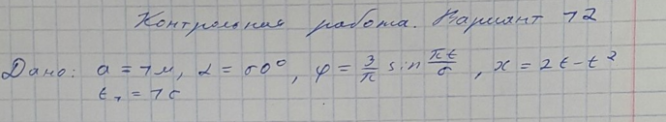 Контрольная работа. Вариант 12
Дано: a = 1м, α = 60°, φ = 3/π sin πt/6, x = 2t - t²
t₁ = 1с